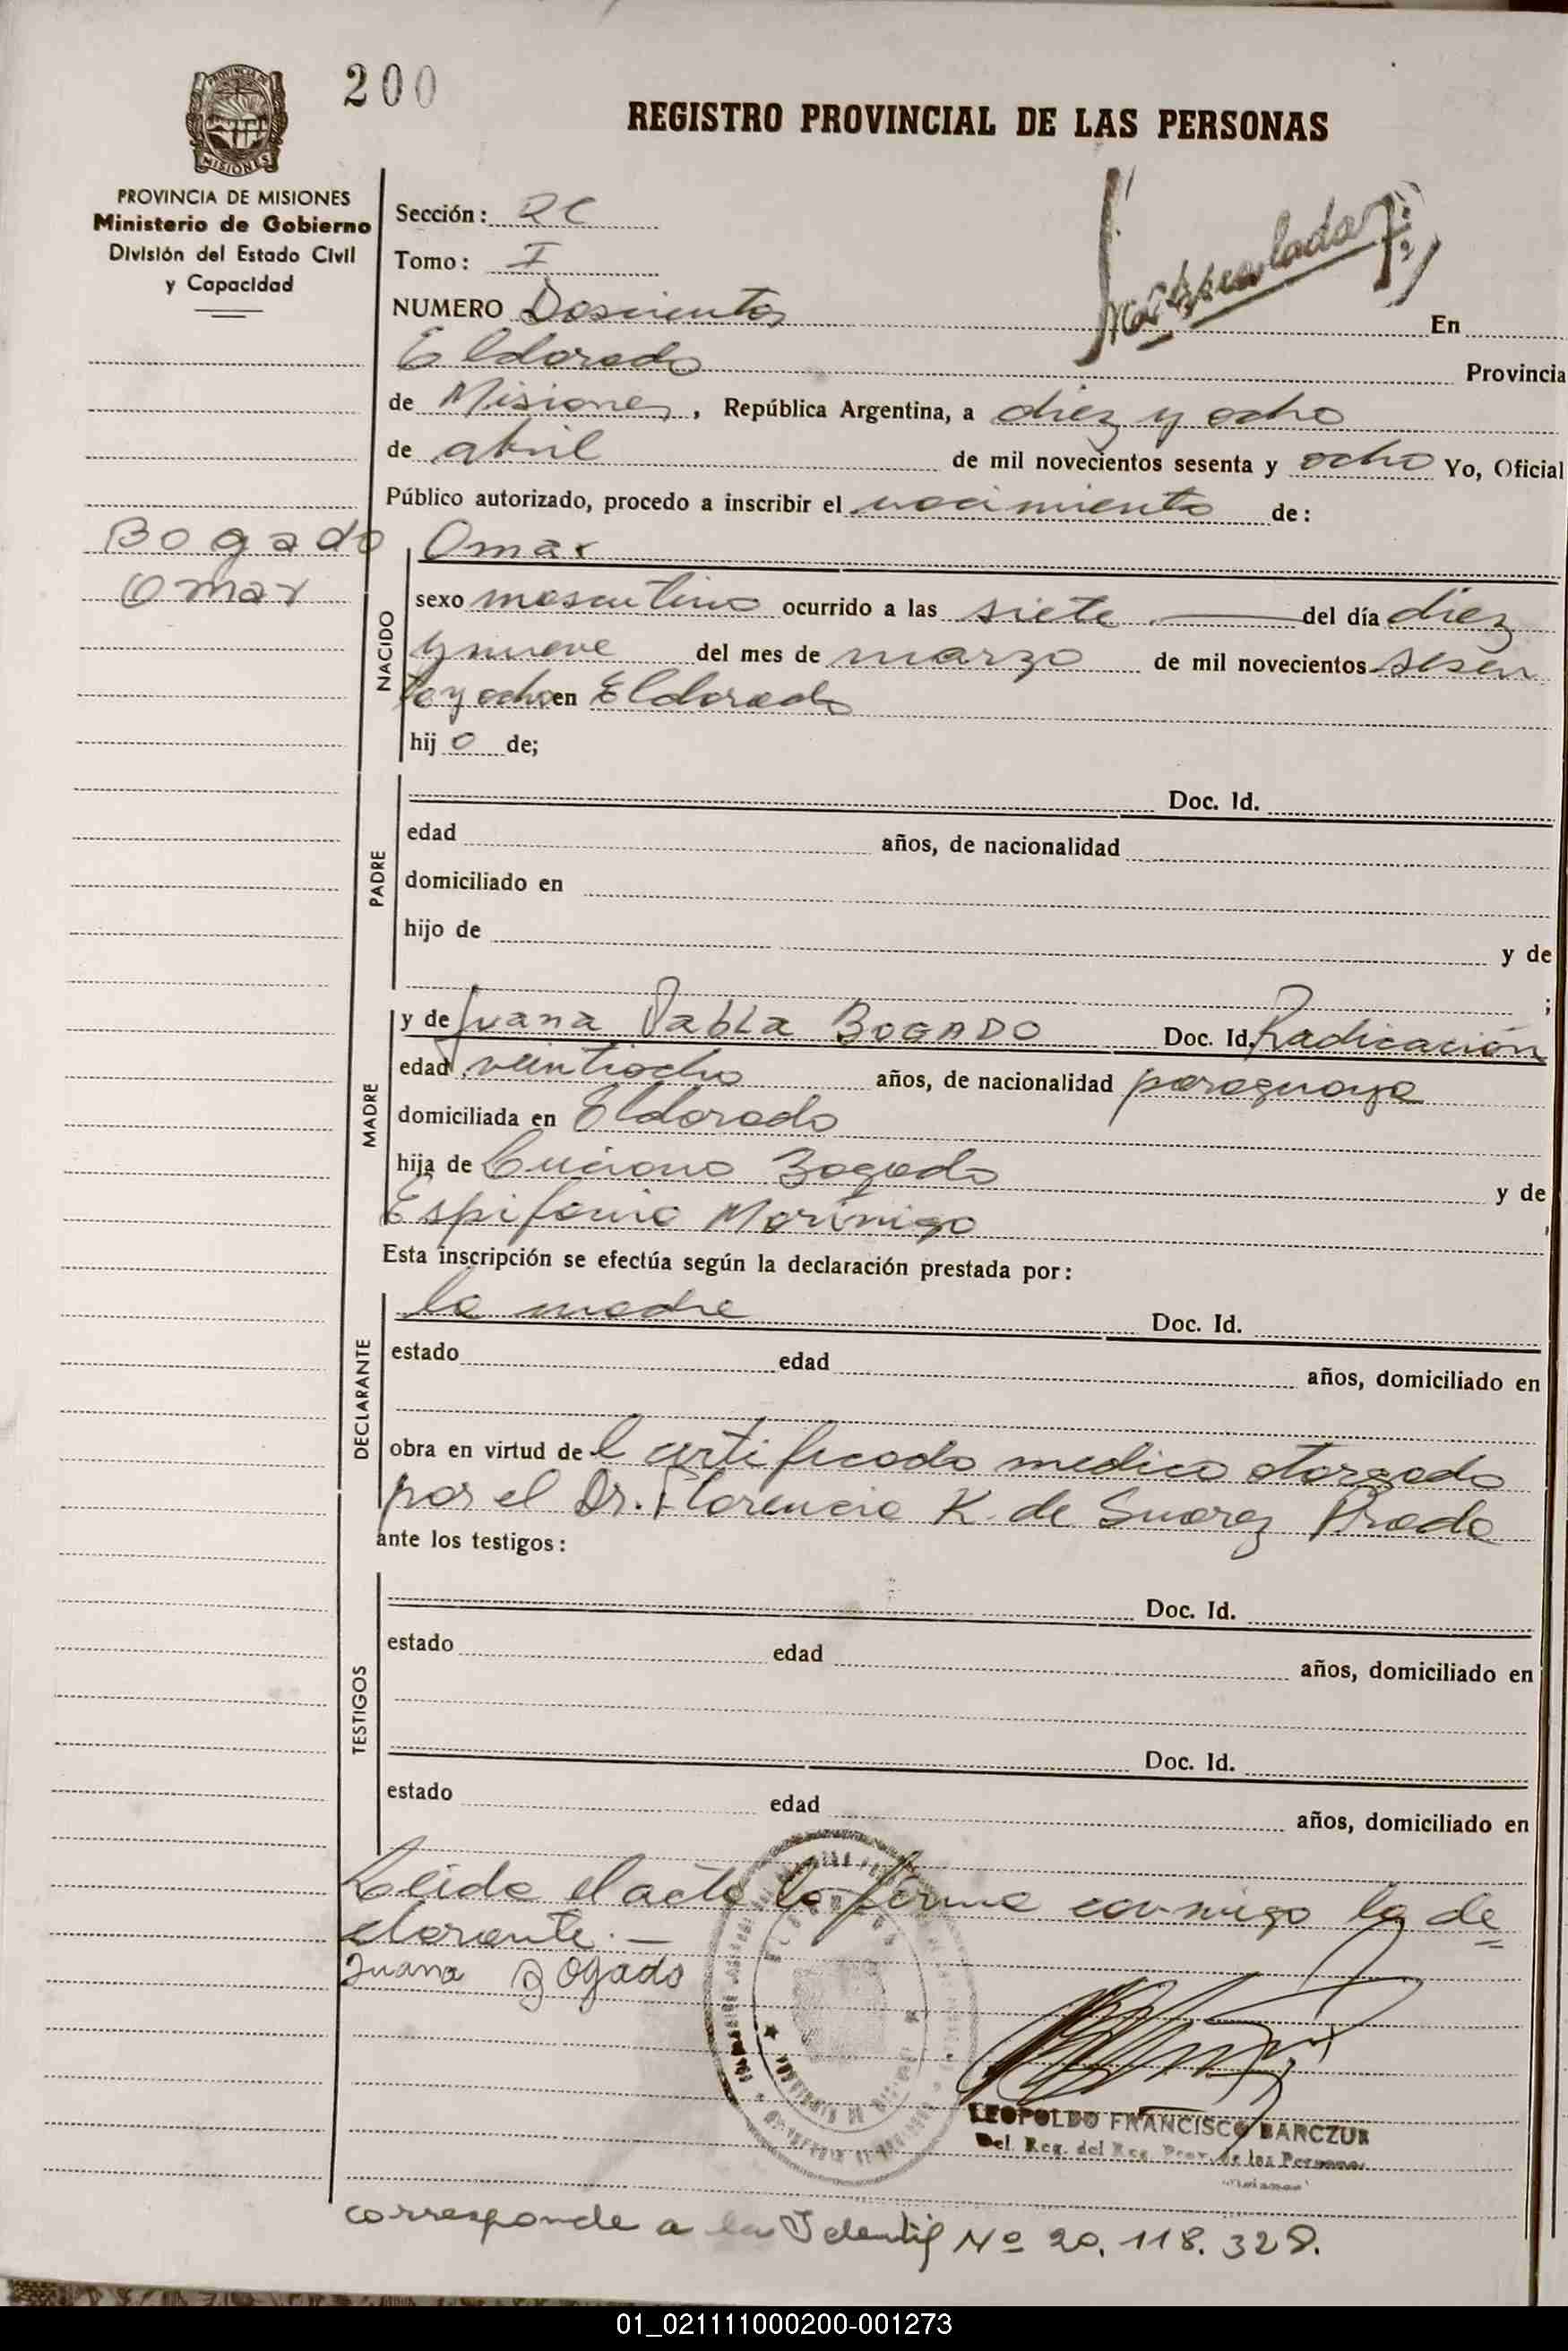 200
REGISTRO PROVINCIAL DE LAS PERSONAS
PROVINCIA DE MISIONES
Ministerio de Gobierno
División del Estado Civil
y Capacidad
Sección:
Tomo: I
NUMERO Doscientos En
Eldorado Provincia
de Misiones, República Argentina, a diez y ocho
de abril de mil novecientos sesenta y ocho Yo, Oficial
Público autorizado, procedo a inscribir el nacimiento de:
Bogado
Omar
Omar
NACIDO
sexo masculino ocurrido a las siete del día diez
y nueve del mes de marzo de mil novecientos sesen
ta y ocho en Eldorado
hijo de;
PADRE
Doc. Id.
edad años, de nacionalidad
domiciliado en
hijo de y de
;
MADRE
y de Juana Pabla BOGADO Doc. Id. Radicación
edad veintiocho años, de nacionalidad paraguaya
domiciliada en Eldorado
hija de Luciano Bogado y de
Espifania Morinigo
Esta inscripción se efectúa según la declaración prestada por:
DECLARANTE
la madre Doc. Id.
estado edad años, domiciliado en
obra en virtud del certificado medico otorgado
por el Dr. Florencia K. de Suarez Prado
ante los testigos:
TESTIGOS
Doc. Id.
estado edad años, domiciliado en
Doc. Id.
estado edad años, domiciliado en
Leida el acta la firma conmigo la de=
clarante.—
Juana Bogado
LEOPOLDO FRANCISCO BARCZUK
Del. Reg. del Reg. Prov. de las Personas
corresponde a la Identif Nº 20.118.328.
01_021111000200-001273